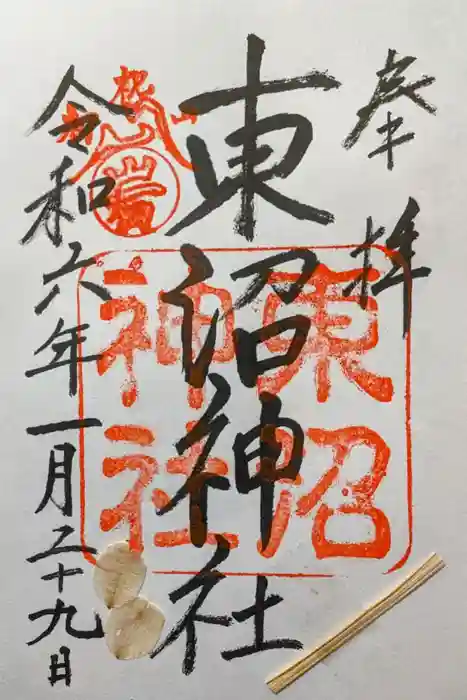 奉拝
東沼神社
令和六年一月二十九日
東沼
神社